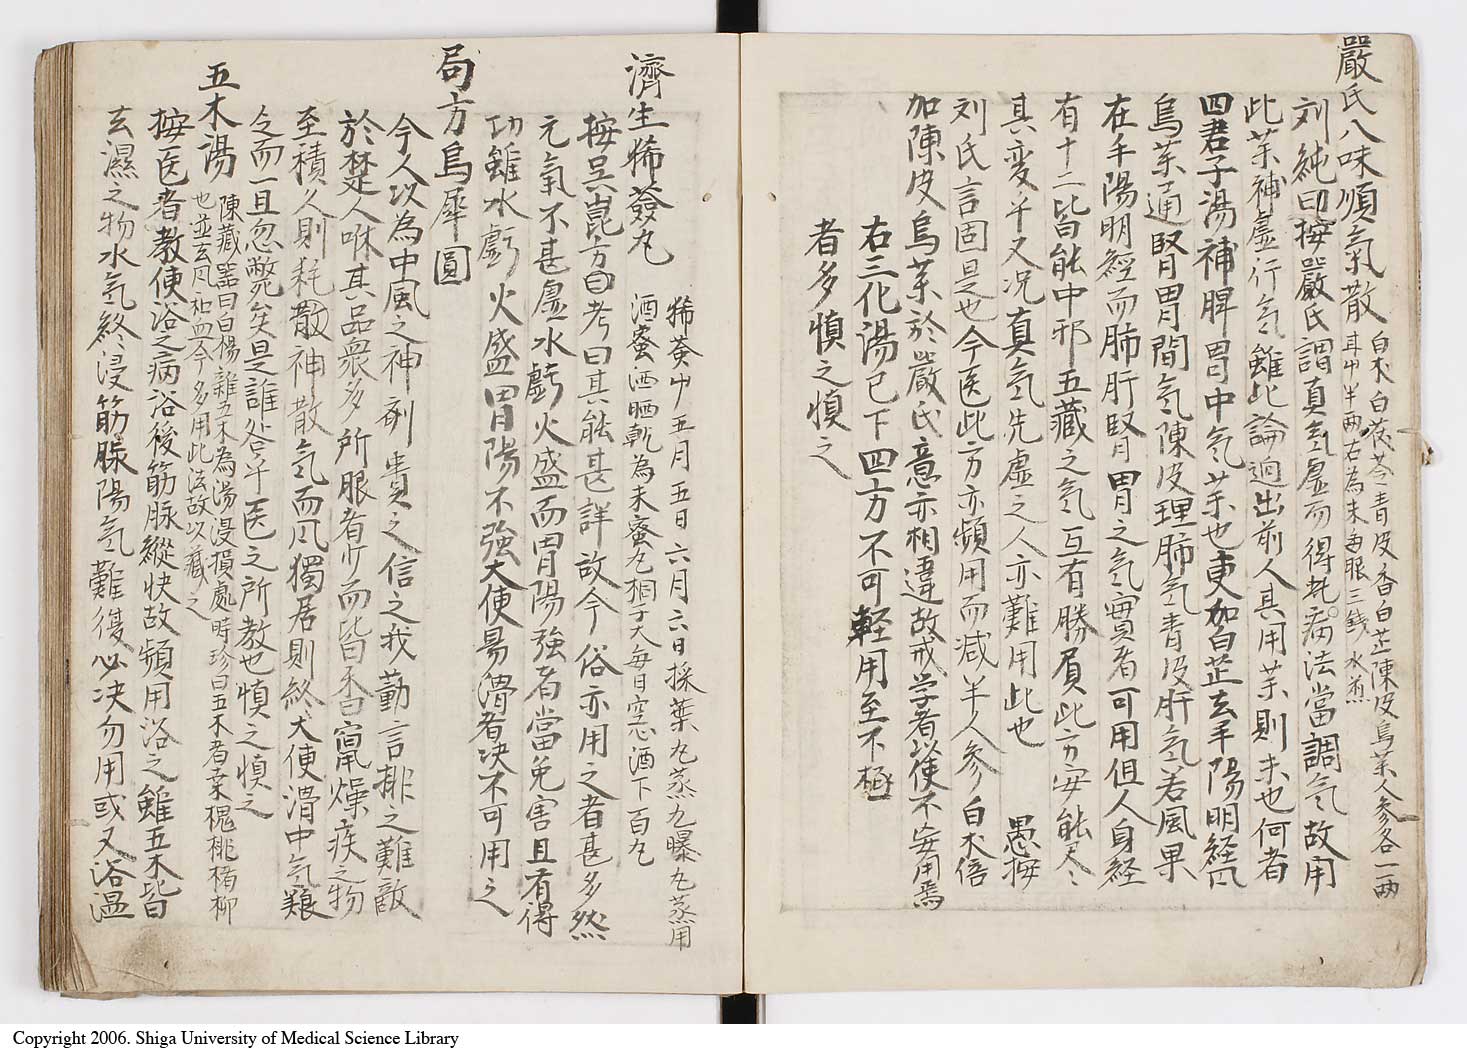 嚴氏八味順氣散
白朮白茯苓青皮香白芷陳皮烏茱人参各一両
耳屮半両右為末毎服三銭水煎
刘純曰按嚴氏謂真氣虚而得耗病法當調气故用
此茱補虚行气雖此論迥出前人其用茱則未也何者
四君子湯補脾胃中气茱也更加白芷去手陽明経风
烏茱通腎胃間气陳皮理肺气青皮肝气若風果
在手陽明經而肺肝腎胃之气實者可用但人身経
有十二皆能中邪五藏之气互有勝屓此方安能尽
其変乎又况真气先虚之人亦難用此也 愚按
刘氏言固是也今医此方亦頻用而减半人参白朮倍
加陳皮烏茱於嚴氏意亦相違故戒学者以使不妄用焉
右三化湯已下四方不可軽用至不極
者多慎之慎之
濟生豨薟丸
豨薟屮五月五日六月六日採葉九蒸九曝九蒸用
酒蜜洒晒乾為末蜜丸桐子大毎日空心酒下百丸
按吴崑方曰考曰其能甚詳故今俗亦用之者甚多然
元氣不甚虚水虧火盛而胃陽強者當免害且有得
功雖水虧火盛胃陽不強大便易滑者决不可用之
局方烏犀圓
今人以為中風之神剤貴之信之我勤言排之難敵
於楚人咻其品衆多所服者少而皆香竄燥疾之物
至積久則耗散神散气而风獨居則終大便滑中气羸
乏而一旦忽斃矣是誰咎乎医之所教也慎之慎之
五木湯
陳藏器曰白楊雑五木為湯浸損處時珍曰五木者桑槐桃楮柳
也並去风和血今多用此法故以藏之
按医者教使浴之病浴後筋脉縱快故頻用浴之雖五木皆
去濕之物水气終浸筋脉陽气難復必决勿用或又浴温
Copyright 2006. Shiga University of Medical Science Library